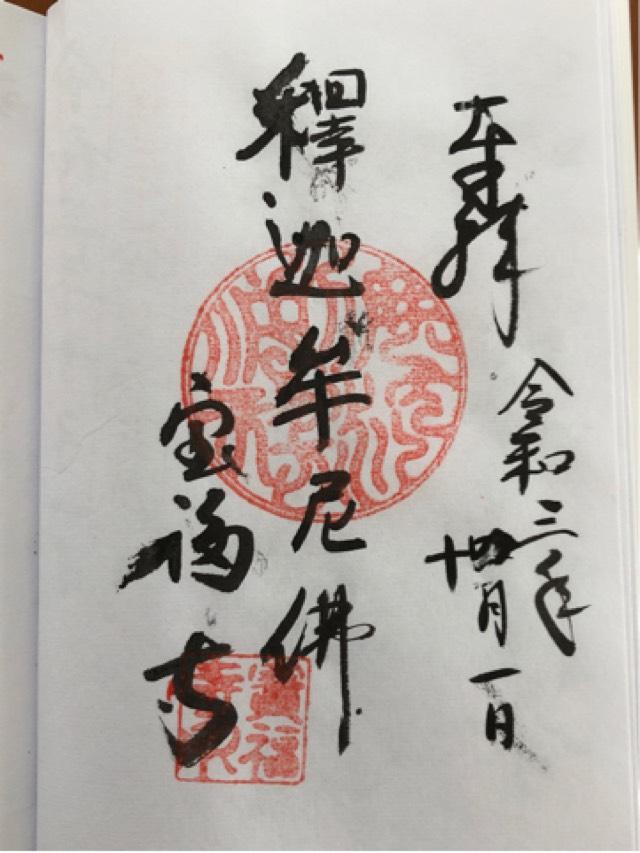 奉拝
令和三年
十四月一日
釋迦牟尼佛
宝福寺
寶福
寺印